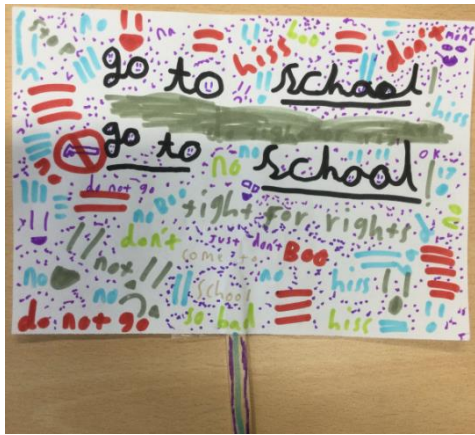 stop no no na hiss boo don't no
go to school!
hiss
go to school!
no OK
no do not go no
no Boo fight for rights
don't just don't Boo
not come to no hiss
no no school
do not go so bad hiss